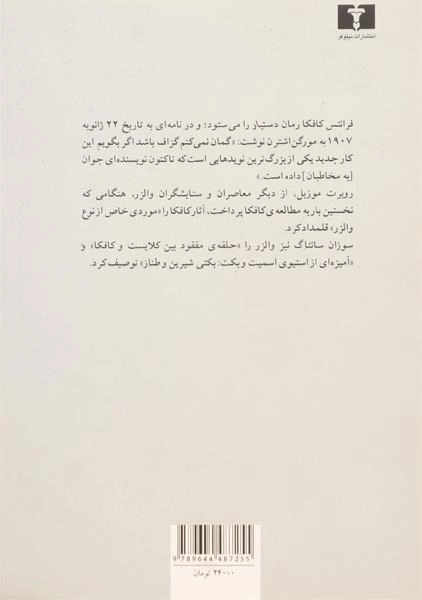 انتشارات نیلوفر
فرانتس کافکا رمان دستیار را می‌ستود؛ و در نامه‌ای به تاریخ ۲۲ ژانویه
۱۹۰۷ به مورگن‌اشترن نوشت: «گمان نمی‌کنم گزاف باشد اگر بگویم این
کار جدید یکی از بزرگ‌ترین نویدهایی است که تاکنون نویسنده‌ای جوان
[به مخاطبان] داده است.»
روبرت موزیل، از دیگر معاصران و ستایشگران والزر، هنگامی که
نخستین بار به مطالعه‌ی کافکا پرداخت، آثار کافکا را «موردی خاص از نوع
والزر» قلمداد کرد.
سوزان سانتاگ نیز والزر را «حلقه‌ی مفقود بین کلایست و کافکا» و
«آمیزه‌ای از استیوی اسمیت و بکت: بکتی شیرین و طناز» توصیف کرد.
9 789644 487255
۲۴۰۰۰ تومان